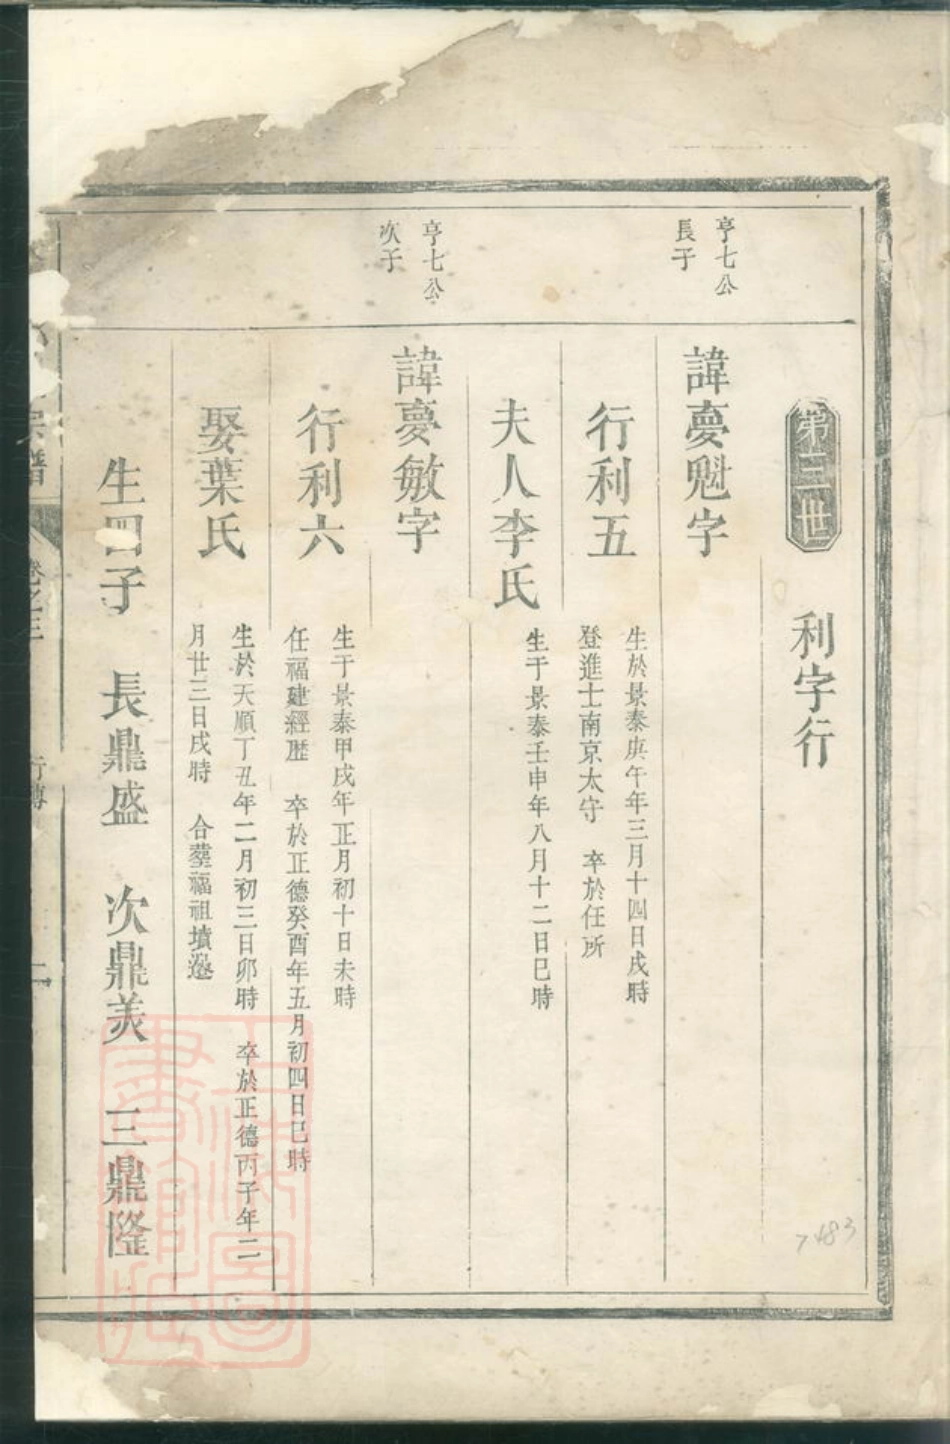 第三世
利字行
亨七公
長子
諱夢魁字
行利五
生於景泰庚午年三月十四日戌時
登進士南京太守 卒於任所
夫人李氏
生于景泰壬申年八月十二日巳時
亨七公
次子
諱夢敏字
行利六
生于景泰甲戌年正月初十日未時
任福建經歷 卒於正德癸酉年五月初四日巳時
娶葉氏
生於天順丁丑年二月初三日卯時 卒於正德丙子年二
月廿三日戌時 合塟福祖墳邊
生四子 長鼎盛 次鼎美 三鼎隆
宗譜
卷之三
行傳
二
7483